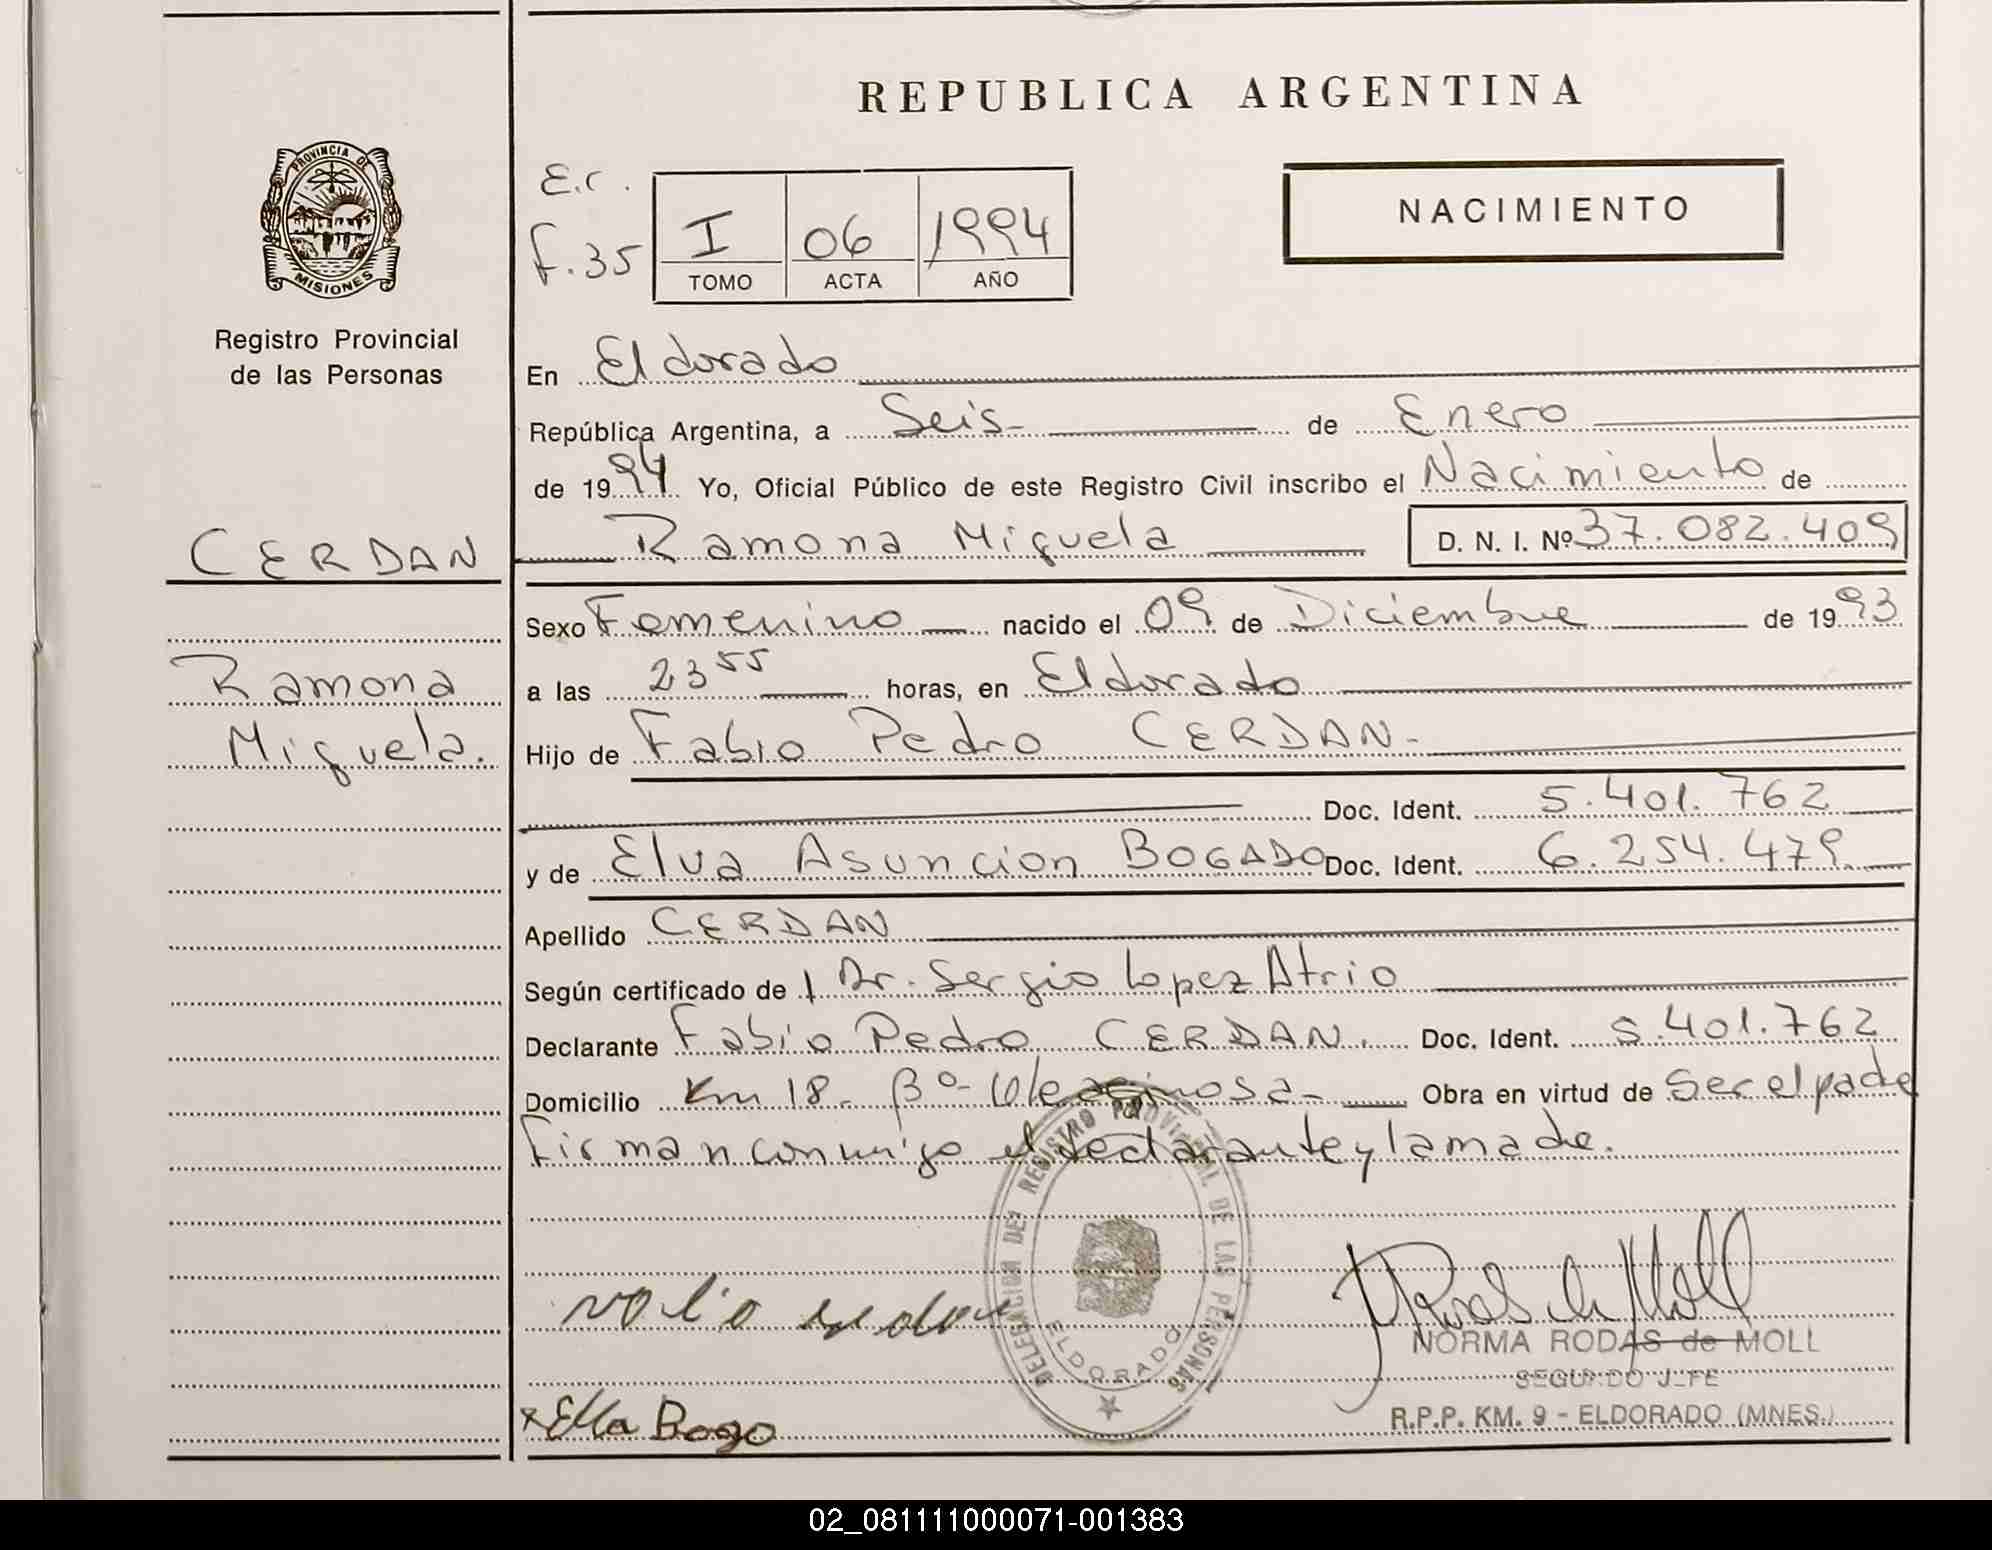 REPUBLICA ARGENTINA
PROVINCIA DE
MISIONES
Registro Provincial
de las Personas
E.C.
F.35
I 06 1994
TOMO ACTA AÑO
NACIMIENTO
En Eldorado
República Argentina, a Seis de Enero
de 1994 Yo, Oficial Público de este Registro Civil inscribo el Nacimiento de
CERDAN
Ramona Miguela D. N. I. Nº 37.082.409
Sexo Femenino nacido el 09 de Diciembre de 1993
Ramona
a las 23 55 horas, en Eldorado
Miguela.
Hijo de Fabio Pedro CERDAN
Doc. Ident. 5.401.762
y de Elva Asuncion BOGADO Doc. Ident. 6.254.479
Apellido CERDAN
Según certificado de Dr. Sergio Lopez Atrio
Declarante Fabio Pedro CERDAN. Doc. Ident. 5.401.762
Domicilio Km 18 - Bº Oleaginosa - Obra en virtud de Ser el padre
Firman conmigo el declarante y la madre.
DELEGACION DEL REGISTRO PROVINCIAL DE LAS PERSONAS
ELDORADO
NORMA RODAS de MOLL
SEGUNDO JEFE
R.P.P. KM. 9 - ELDORADO (MNES.)
02_081111000071-001383